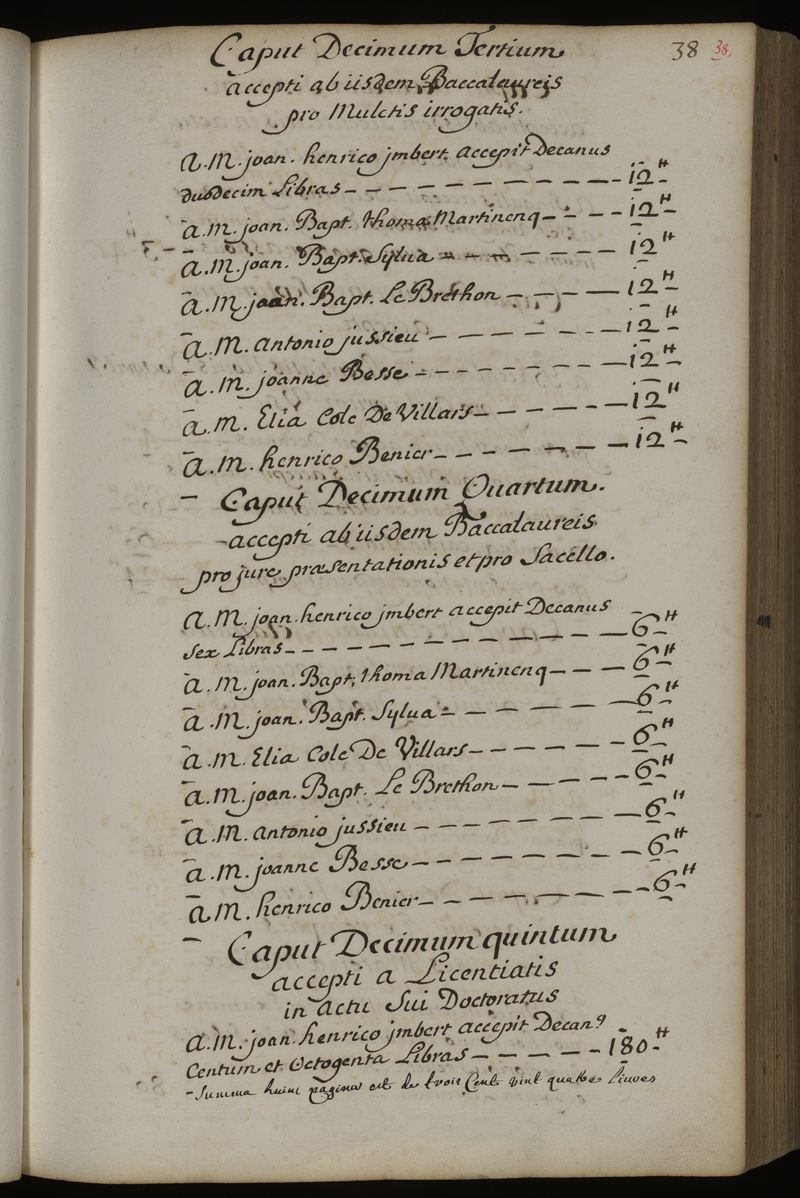 38 38,
Caput Decimum Tertium
accepti ab iisdem Baccalaureis
pro Mulctis irrogatis.
a. M. joan. henrico jmbert accepit Decanus
duodecim Libras – – – – – – – – – 12 ⁠H –
a. M. joan. Bapt. thoma Martinenq – – – – 12 H –
a. M. joan. Bapt. Sylua – – – – – – – 12 H
a. M. joan. Bapt. Le Brethon – – – – 12 H –
a. M. antonio jussieu – – – – – – – 12 H –
a. M. joanne Besse – – – – – – – – 12 H –
a. M. Elia Cole De Villars – – – – – – 12 H
a. M. henrico Benier – – – – – – – 12 H –
– Caput Decimum Quartum.
accepti ab iisdem Baccalaureis
pro jure præsentationis et pro Sacello.
a. M. joan. henrico jmbert accepit Decanus
sex Libras – – – – – – – – – – – 6 H –
a. M. joan. Bapt. thoma Martinenq – – – 6 H –
a. M. joan. Bapt. Sylua – – – – – – 6 H –
a. M. Elia Cole De Villars – – – – – – 6 H –
a. M. joan. Bapt. Le Brethon – – – – – 6 H –
a. M. antonio jussieu – – – – – – – – 6 H –
a. M. joanne Besse – – – – – – – – 6 H –
a M. henrico Benier – – – – – – – – 6 H –
– Caput Decimum quintum
accepti a Licentiatis
in actu sui Doctoratus
a. M. joan. henrico jmbert accepit Decanꝰ
Centum et Octogenta Libras – – – – – 180 H –
– Summa huius paginæ est de trois Cent vint quattre Liures